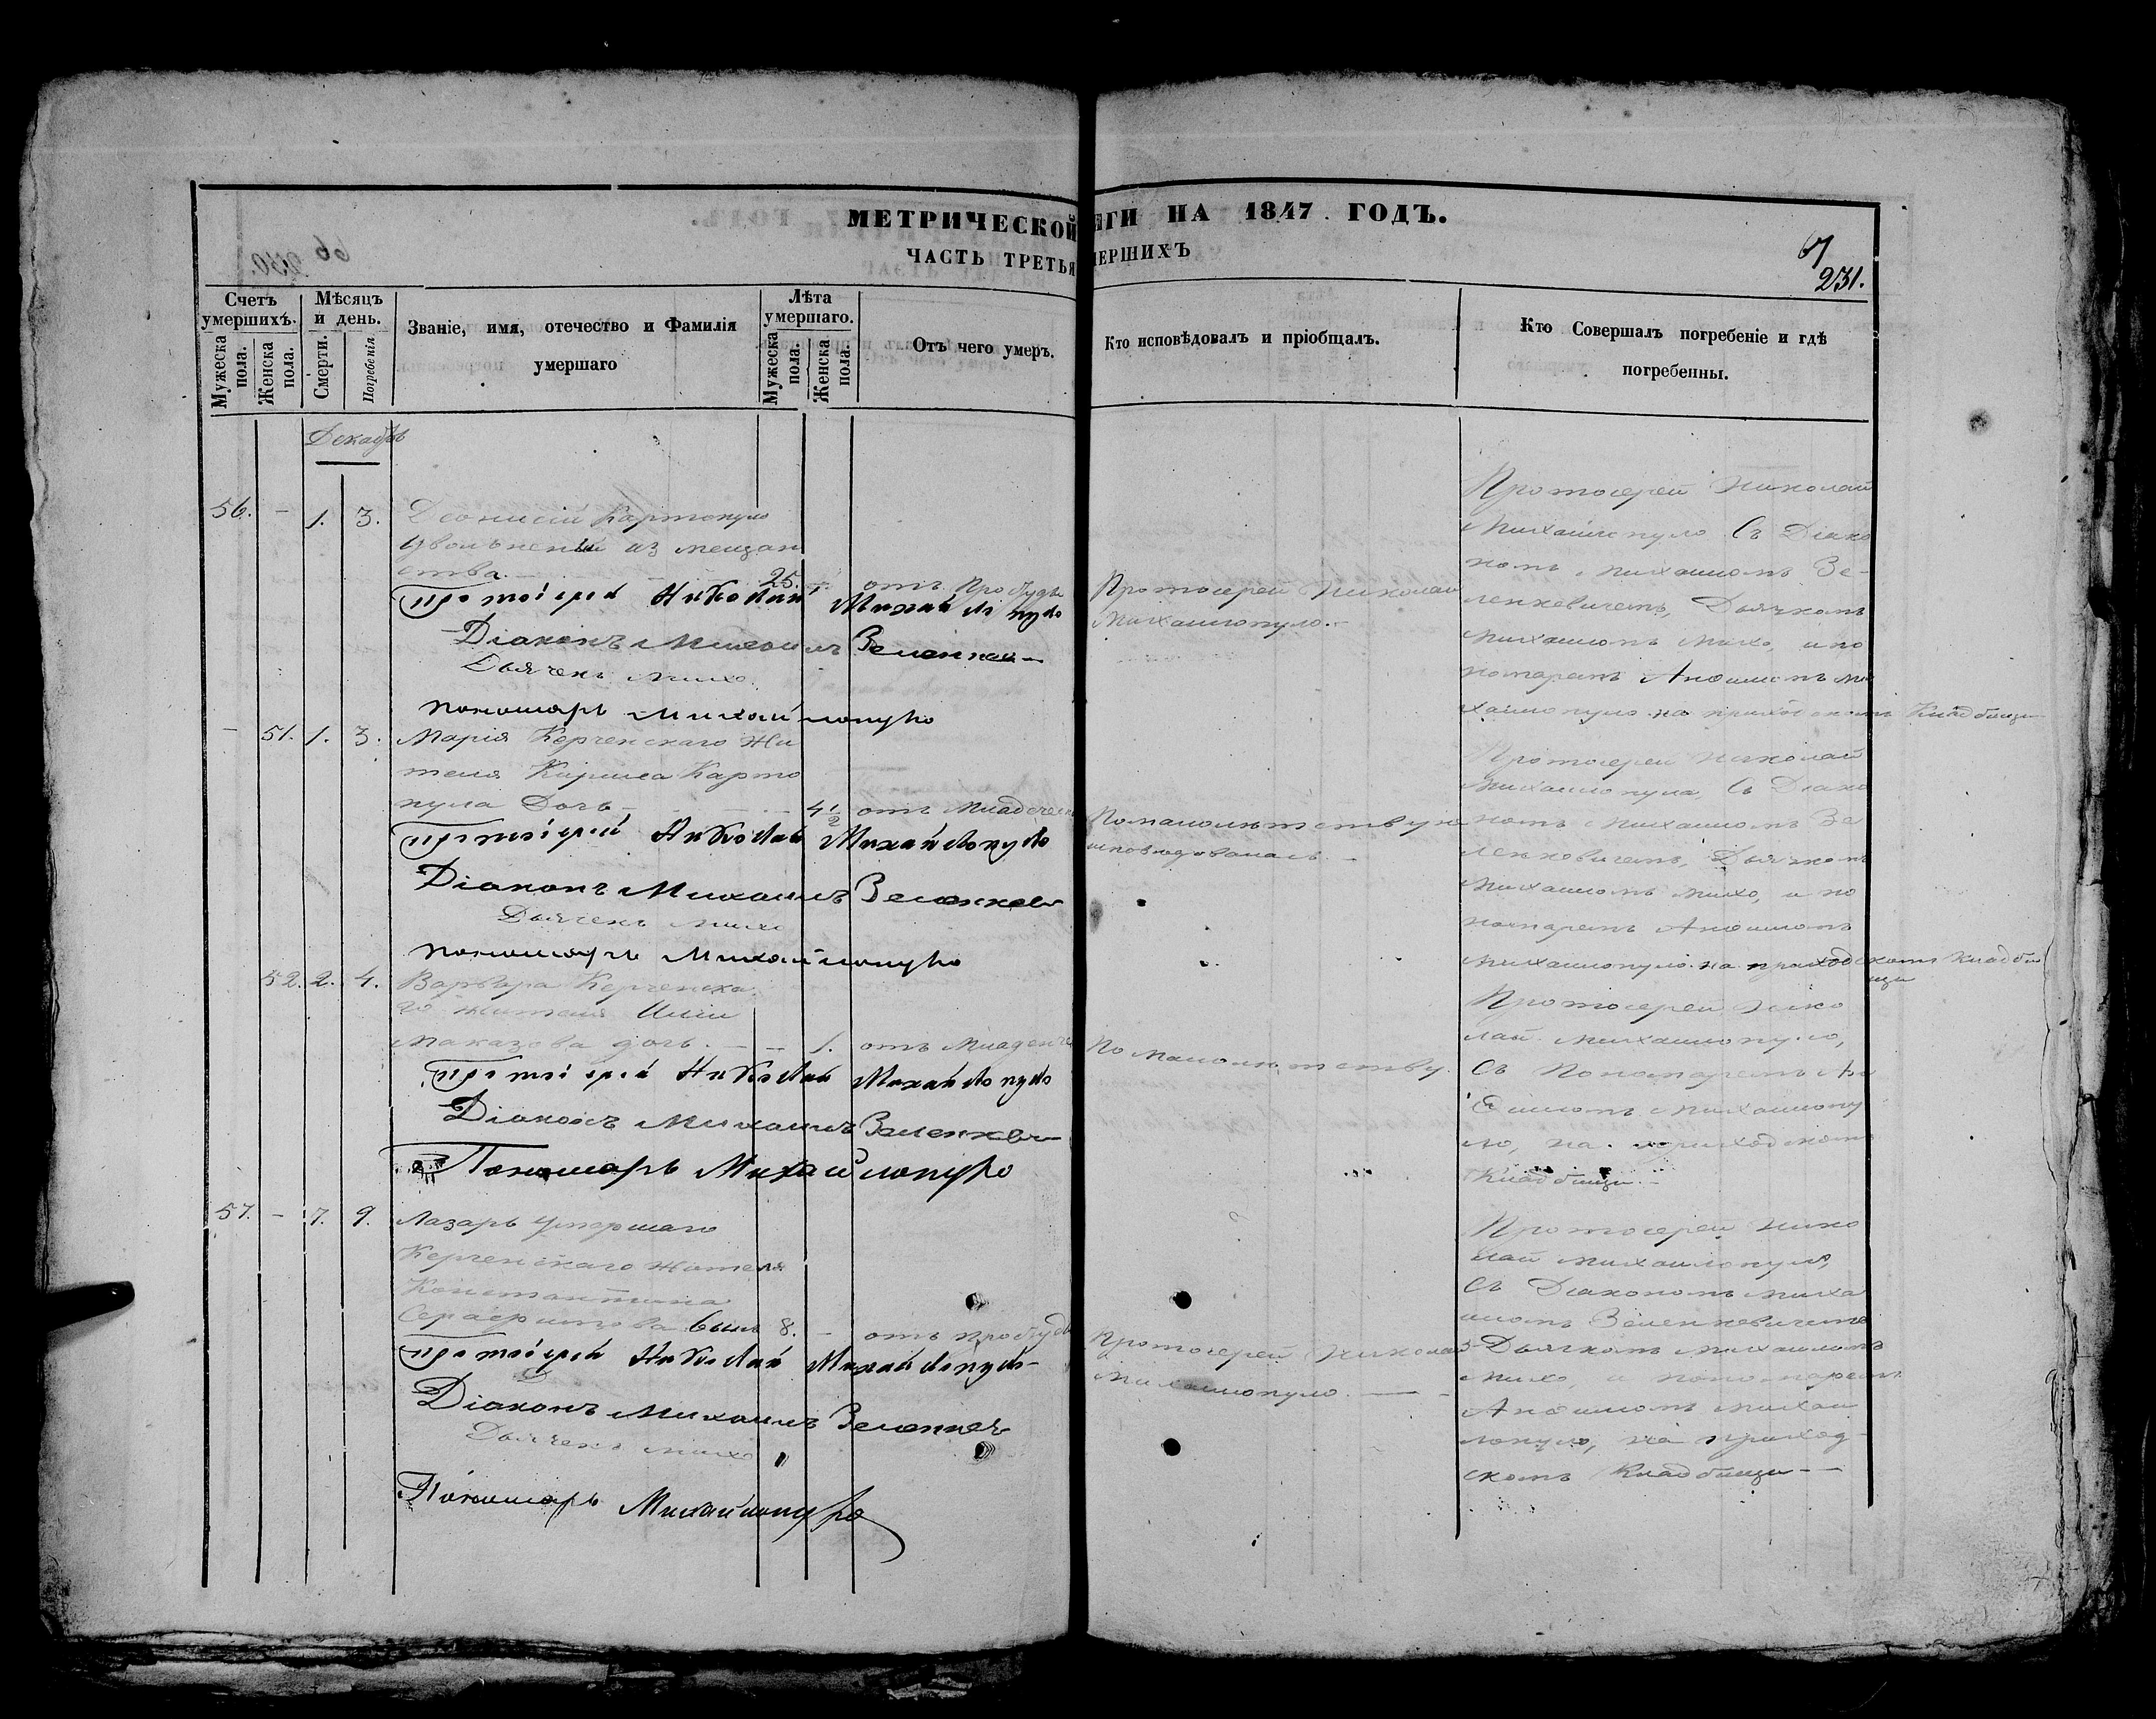 МЕТРИЧЕСКОЙ
ИГИ НА 1847 ГОДЪ.
ЧАСТЬ ТРЕТЬЯ
МЕРШИХЪ
67
231.
Счетъ умершихъ.
Мужеска пола.
Женска пола.
Мѣсяцъ и день.
Смерти.
Погребенія.
Званіе, имя, отечество и Фамилія
умершаго
Лѣта умершаго.
Мужеска пола.
Женска пола.
Отъ чего умеръ.
Кто исповѣдовалъ и пріобщалъ.
Кто Совершалъ погребеніе и гдѣ
погребенны.
Декабрь
56. - 1. 3. Діонисій Картопуло
увольненый из мещан
ства. 25. - отъ Простуды
Протоіерей Николай Михайлопуло
Діаконъ Михаилъ Зеленкев
Дьячекъ Михо
пономарь Михайлопуло
Протоіерей Николай
Михайлопуло.
Протоіерей Николай
Михайлопуло Съ Діако
номъ Михаиломъ Зе-
ленкевичемъ, Дьячкомъ
Михаиломъ Михо, и по
номаремъ Анфимомъ Ми
хайлопуло на приходскомъ Кладбищи
- 51. 1. 3. Марія Керченскаго Жи
теля Кирилла Карто
пула Дочь 4 1/2 отъ Младенчес
Протоіерей Николай Михайлопуло
Діаконъ Михаилъ Зеленкев
Дьячекъ Михо
пономарь Михайлопуло
По малолетству не
исповедовалась.
Протоіерей Николай
Михайлопула, Съ Діако
номъ Михаиломъ Зе
ленковичемъ, Дьячкомъ
Михаиломъ Михо, и по
номаремъ Анфимомъ
Михайлопуло на приходскомъ Кладби
щи
52. 2. 4. Варвара Керченска
го жителя Иліи
Маказова дочь. 1. отъ Младенче
Протоіерей Николай Михайлопуло
Діаконъ Михаилъ Зеленкев
Пономарь Михайлопуло
По малолетству.
Протоіерей Нико
лай Михайлопуло,
Съ Пономаремъ Ан
фимомъ Михайлопу
ло, на приходскомъ
Кладбищи.
57. - 7. 9. Лазарь Умершаго
Керченскаго жителя
Константина
Серафимова сынъ 8. - отъ простуды
Протоіерей Николай Михайлопуло
Діаконъ Михаилъ Зеленкев
Дьячекъ Михо
Пономарь Михайлопуло
Протоіерей Николай
Михайлопуло.
Протоіерей Нико
лай Михайлопуло,
Съ Діакономъ Миха
иломъ Зеленкевичемъ
Дьячкомъ Михаиломъ
Михо, и пономаремъ
Анфимомъ Михай
лопуло, на приход-
скомъ Кладбищи